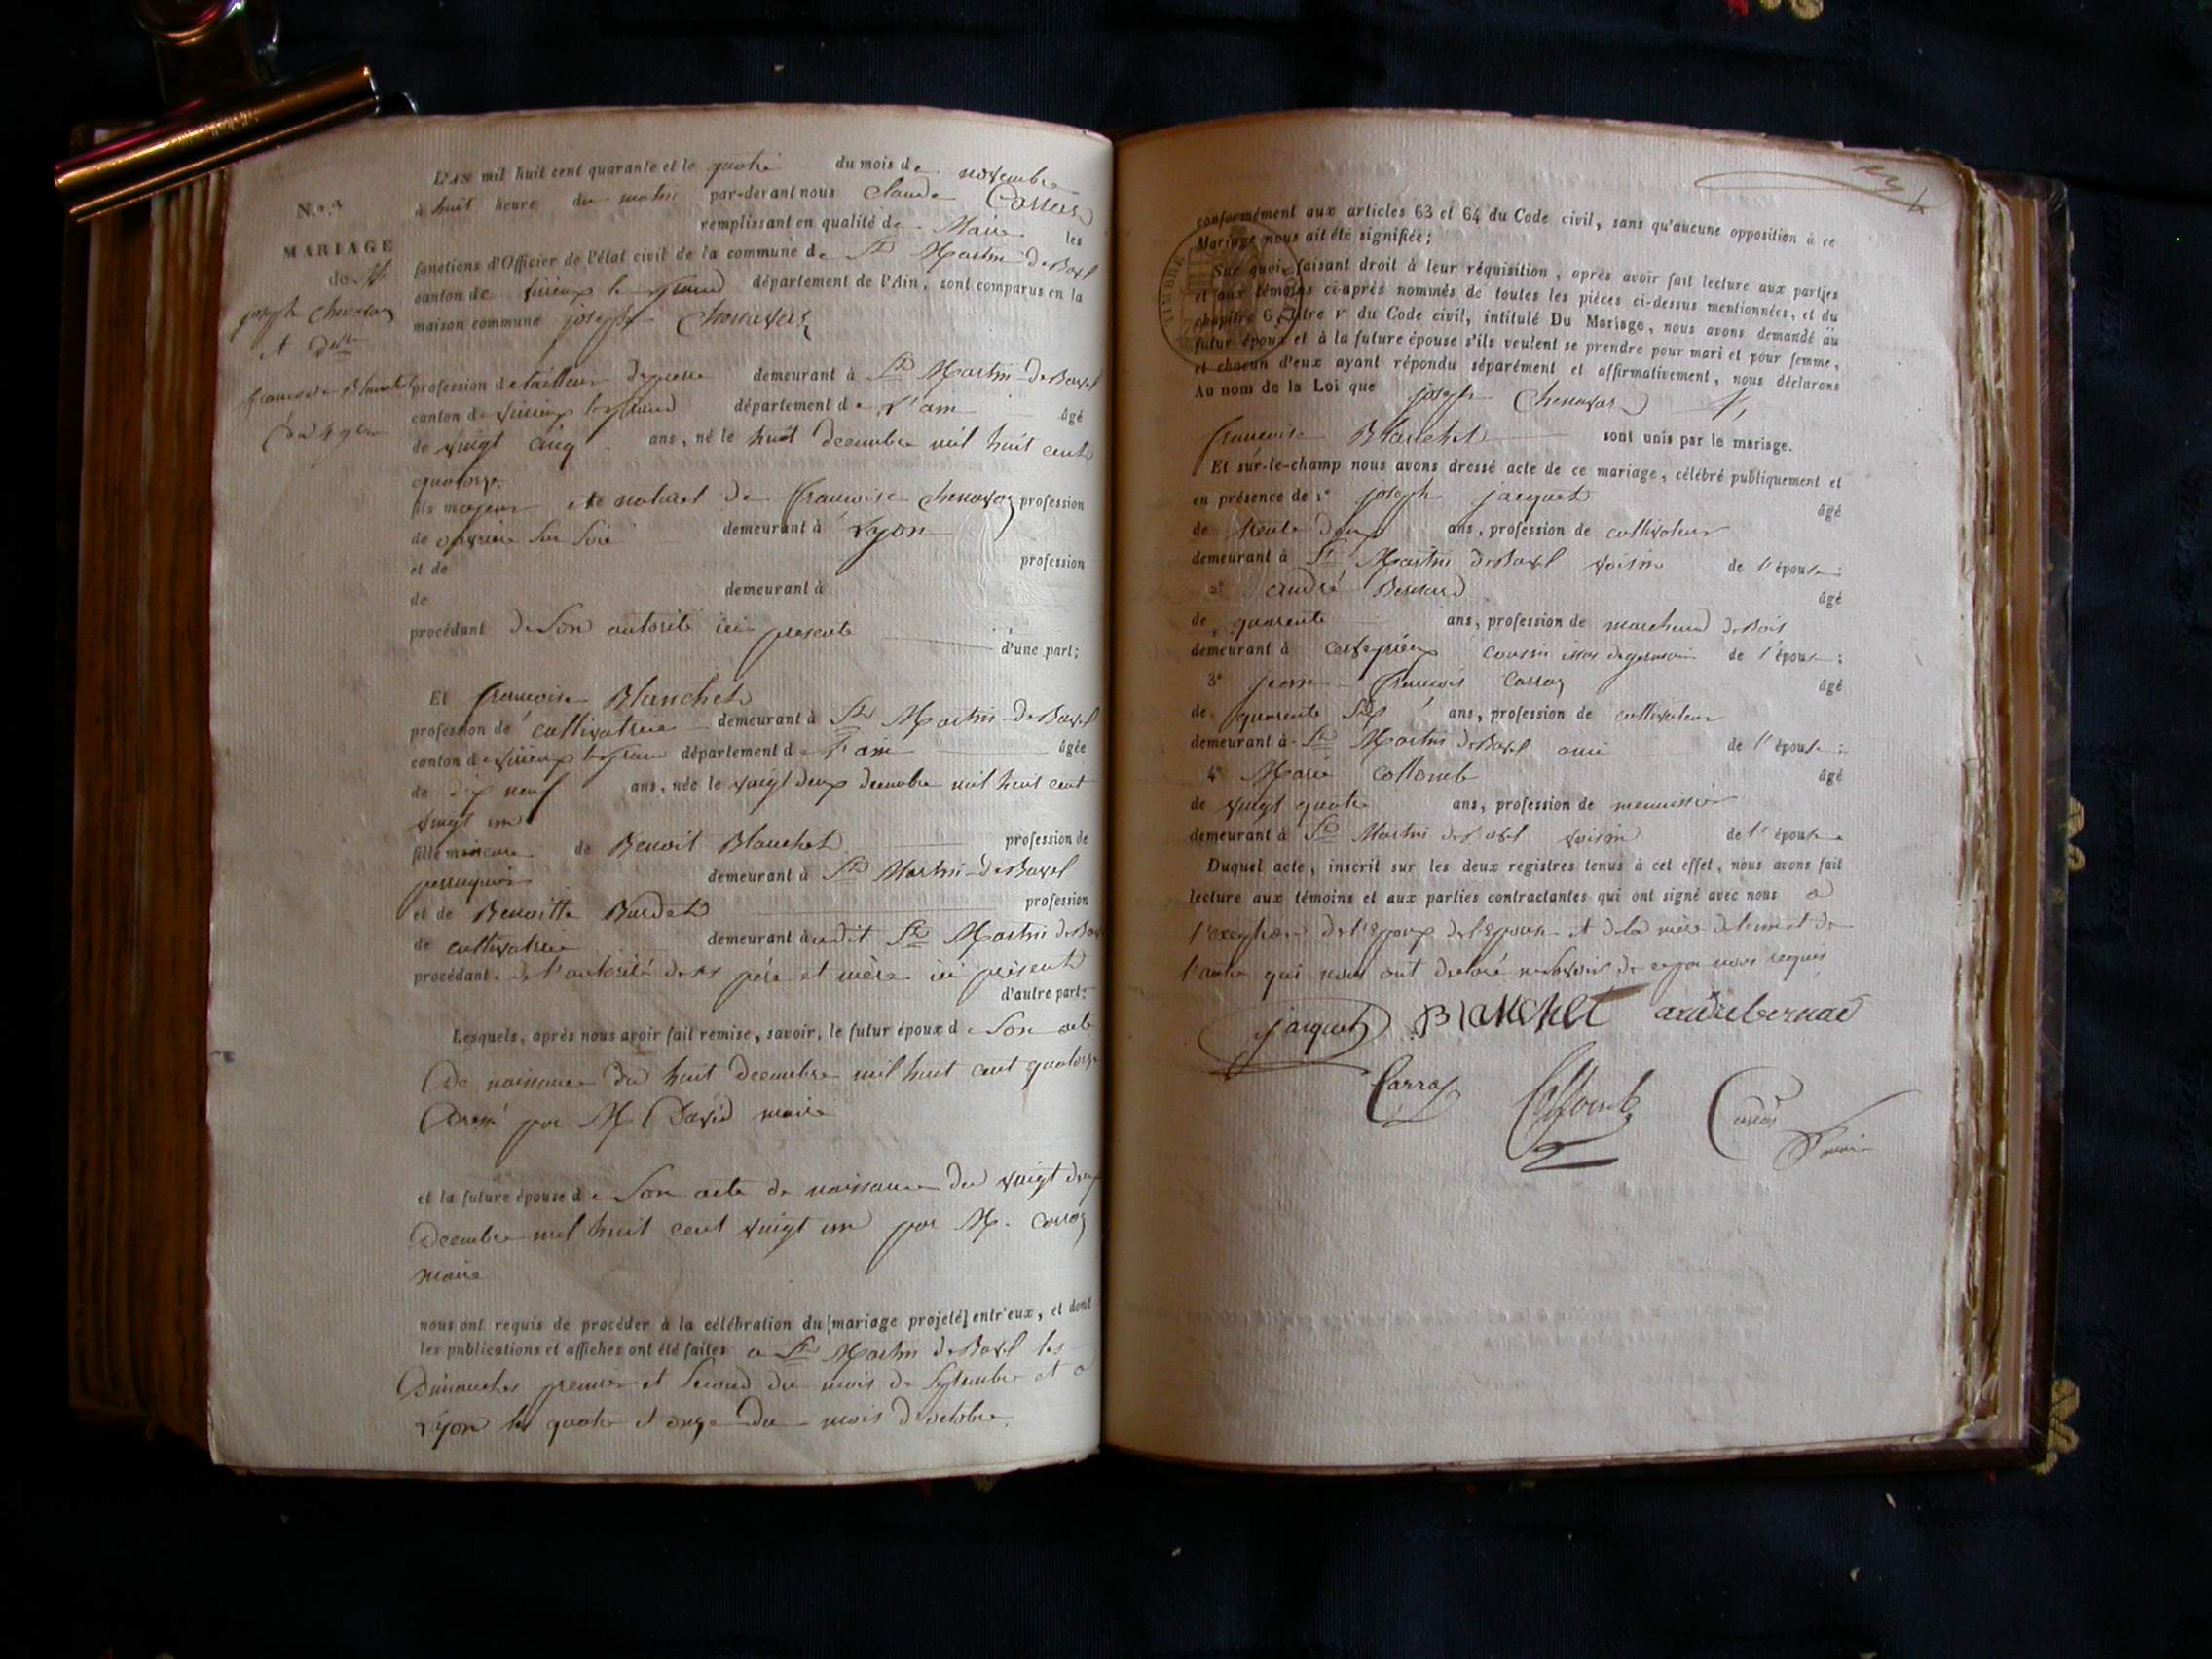 L'AN mil huit cent quarante et le quatre du mois de novembre
à huit heure du matin par-devant nous Claude
remplissant en qualité de Maire les
fonctions d'Officier de l'état civil de la commune de St Martin de Bavel
canton de virieux le grand département de l'Ain, sont comparus en la
maison commune joseph Chenavas
N.º 3
MARIAGE
de M
joseph Chenavas
et Delle
francoise Blanchet
du 4 9bre
profession de tailleur de pierre demeurant à St Martin de Bavel
canton de virieux le grand département de l'ain âgé
de vingt cinq ans, né le huit decembre mil huit cent
quatorze
fils majeur et naturel de francoise Chenavaz profession
de ouvrière sur soie demeurant à Lyon
et de profession
de demeurant à
procédant de son autorité ici presente d'une part;
Et francoise Blanchet
profession de cultivatrice demeurant à St Martin de Bavel
canton de virieux le grand département de l'ain âgée
de dix neuf ans, née le vingt deux decembre mil huit cent
vingt un
fille mineure de Benoit Blanchet profession de
perruquier demeurant à St Martin de Bavel
et de Benoitte Burdet profession
de cultivatrice demeurant à udit St Martin de Bavel
procédant de l'autorité de ses père et mère ici présents
d'autre part:
Lesquels, après nous avoir fait remise, savoir, le futur époux de Son acte
De naissance du huit decembre mil huit cent quatorze
Dressé par M David maire
et la future épouse de Son acte de naissance du vingt deux
Decembre mil huit cent vingt un par M. Carraz
maire
nous ont requis de procéder à la célébration du [mariage projeté] entr'eux, et dont
les publications et affiches ont été faites a St Martin de Bavel les
Dimanches premier et second du mois de Septembre et a
Lyon les quatre et onze du mois d'octobre.
conformément aux articles 63 et 64 du Code civil, sans qu'aucune opposition à ce
Mariage nous ait été signifiée;
TIMBRE
Sur quoi, faisant droit à leur réquisition, après avoir fait lecture aux parties
et aux témoins ci-après nommés de toutes les pièces ci-dessus mentionnées, et du
chapitre 6, titre V du Code civil, intitulé Du Mariage, nous avons demandé au
futur époux et à la future épouse s'ils veulent se prendre pour mari et pour femme,
et chacun d'eux ayant répondu séparément et affirmativement, nous déclarons
Au nom de la Loi que joseph Chenavas et
francoise Blanchet sont unis par le mariage.
Et sur-le-champ nous avons dressé acte de ce mariage, célébré publiquement et
en présence de 1º joseph jacquet âgé
de trente deux ans, profession de cultivateur
demeurant à St Martin de Bavel voisin de l'épouse;
2º andré Bernard âgé
de quarente ans, profession de marchand de Bois
demeurant à cousin issus de germain de l'épouse;
3º jean francois Carraz âgé
de quarente sept ans, profession de cultivateur
demeurant à St Martin de Bavel ami de l'épouse;
4º Marie Collomb âgé
de vingt quatre ans, profession de menuisier
demeurant à St Martin de Bavel voisin de l'épouse
Duquel acte, inscrit sur les deux registres tenus à cet effet, nous avons fait
lecture aux témoins et aux parties contractantes qui ont signé avec nous a
l'exception de l'Epoux de l'Epouse et de la mère de l'un et de
l'autre qui nous ont declaré ne savoir de ce par nous requis
jacquet Blanchet andrebernard
Carraz Collomb